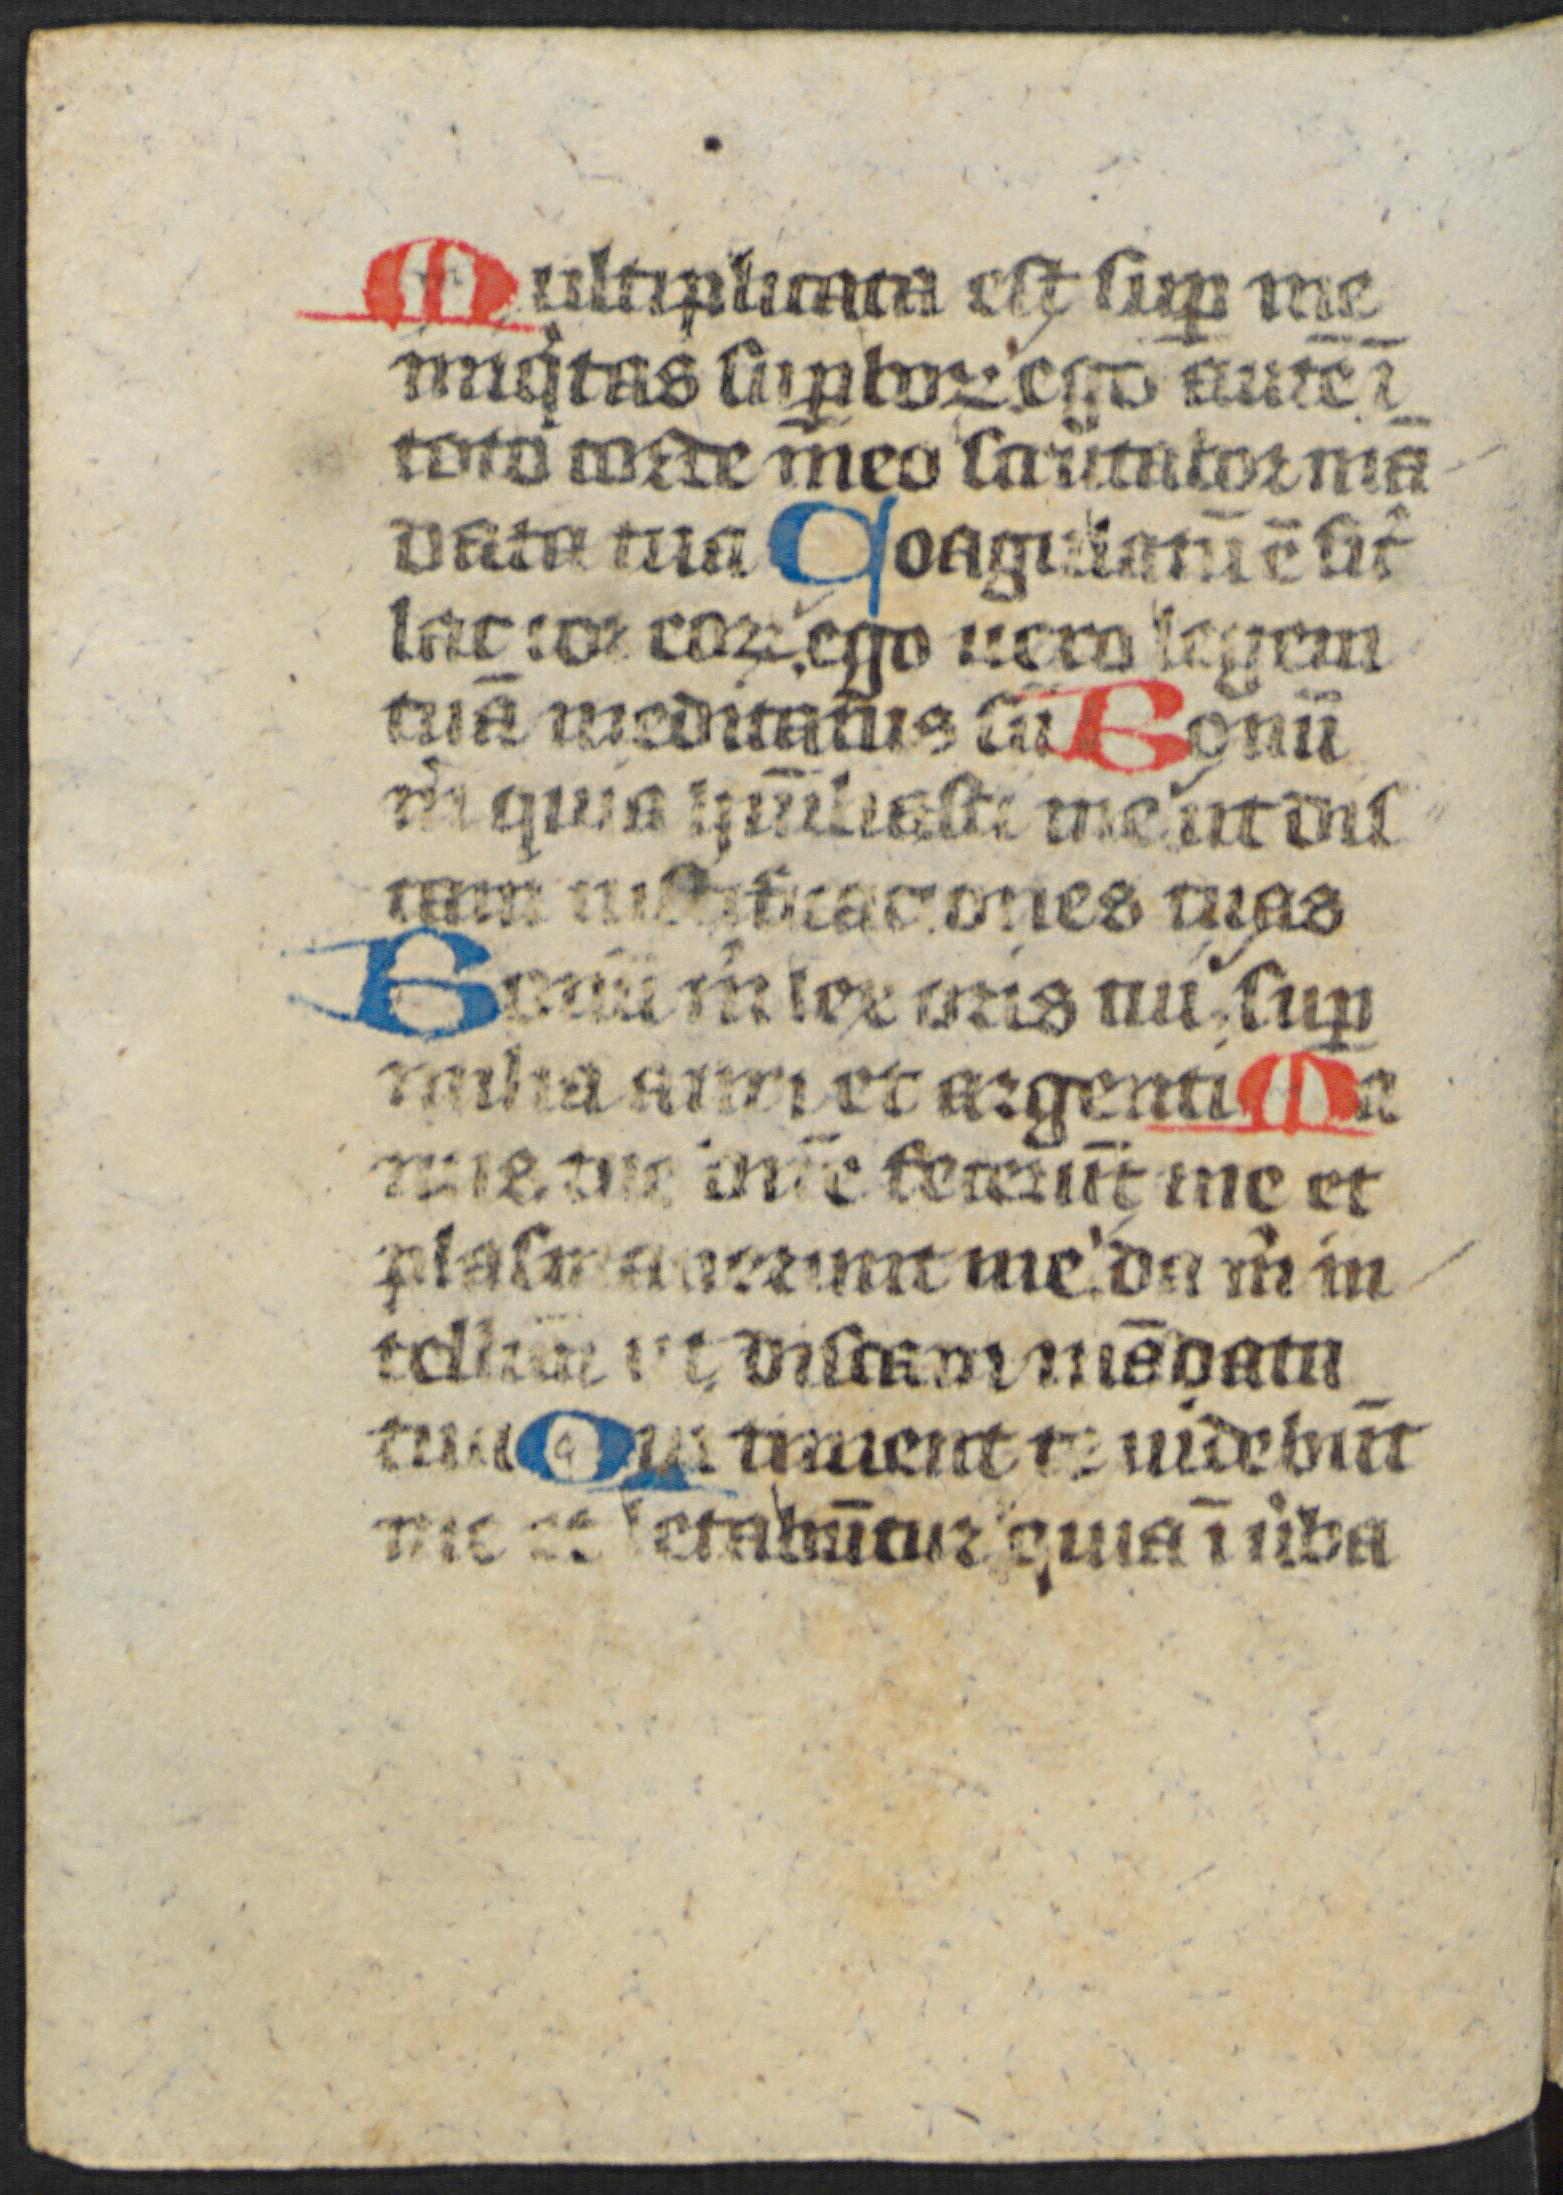 Multiplicata est sup̱ me
iniqͥtas sup̱boꝝ ego aūt̄e ī
toto corde m̄eo scͣutabor mā
data tua Coagulatū ē sicͭ
lac cor eoꝝ ego uero legem
tuā meditatus sū Bonū
m̊ quia hūiliasti me ut dis
cam iustificaciones tuas
Bonū m̊ lex oris tui sup̱
milia auri et argenti Ma
nus tue dn̄e fecerūt me et
plasmauerunt me da m̊ in
tellc̄m ut discam mādata
tua Qui timent te uidebūt
me et letabūtur quia ī ūba